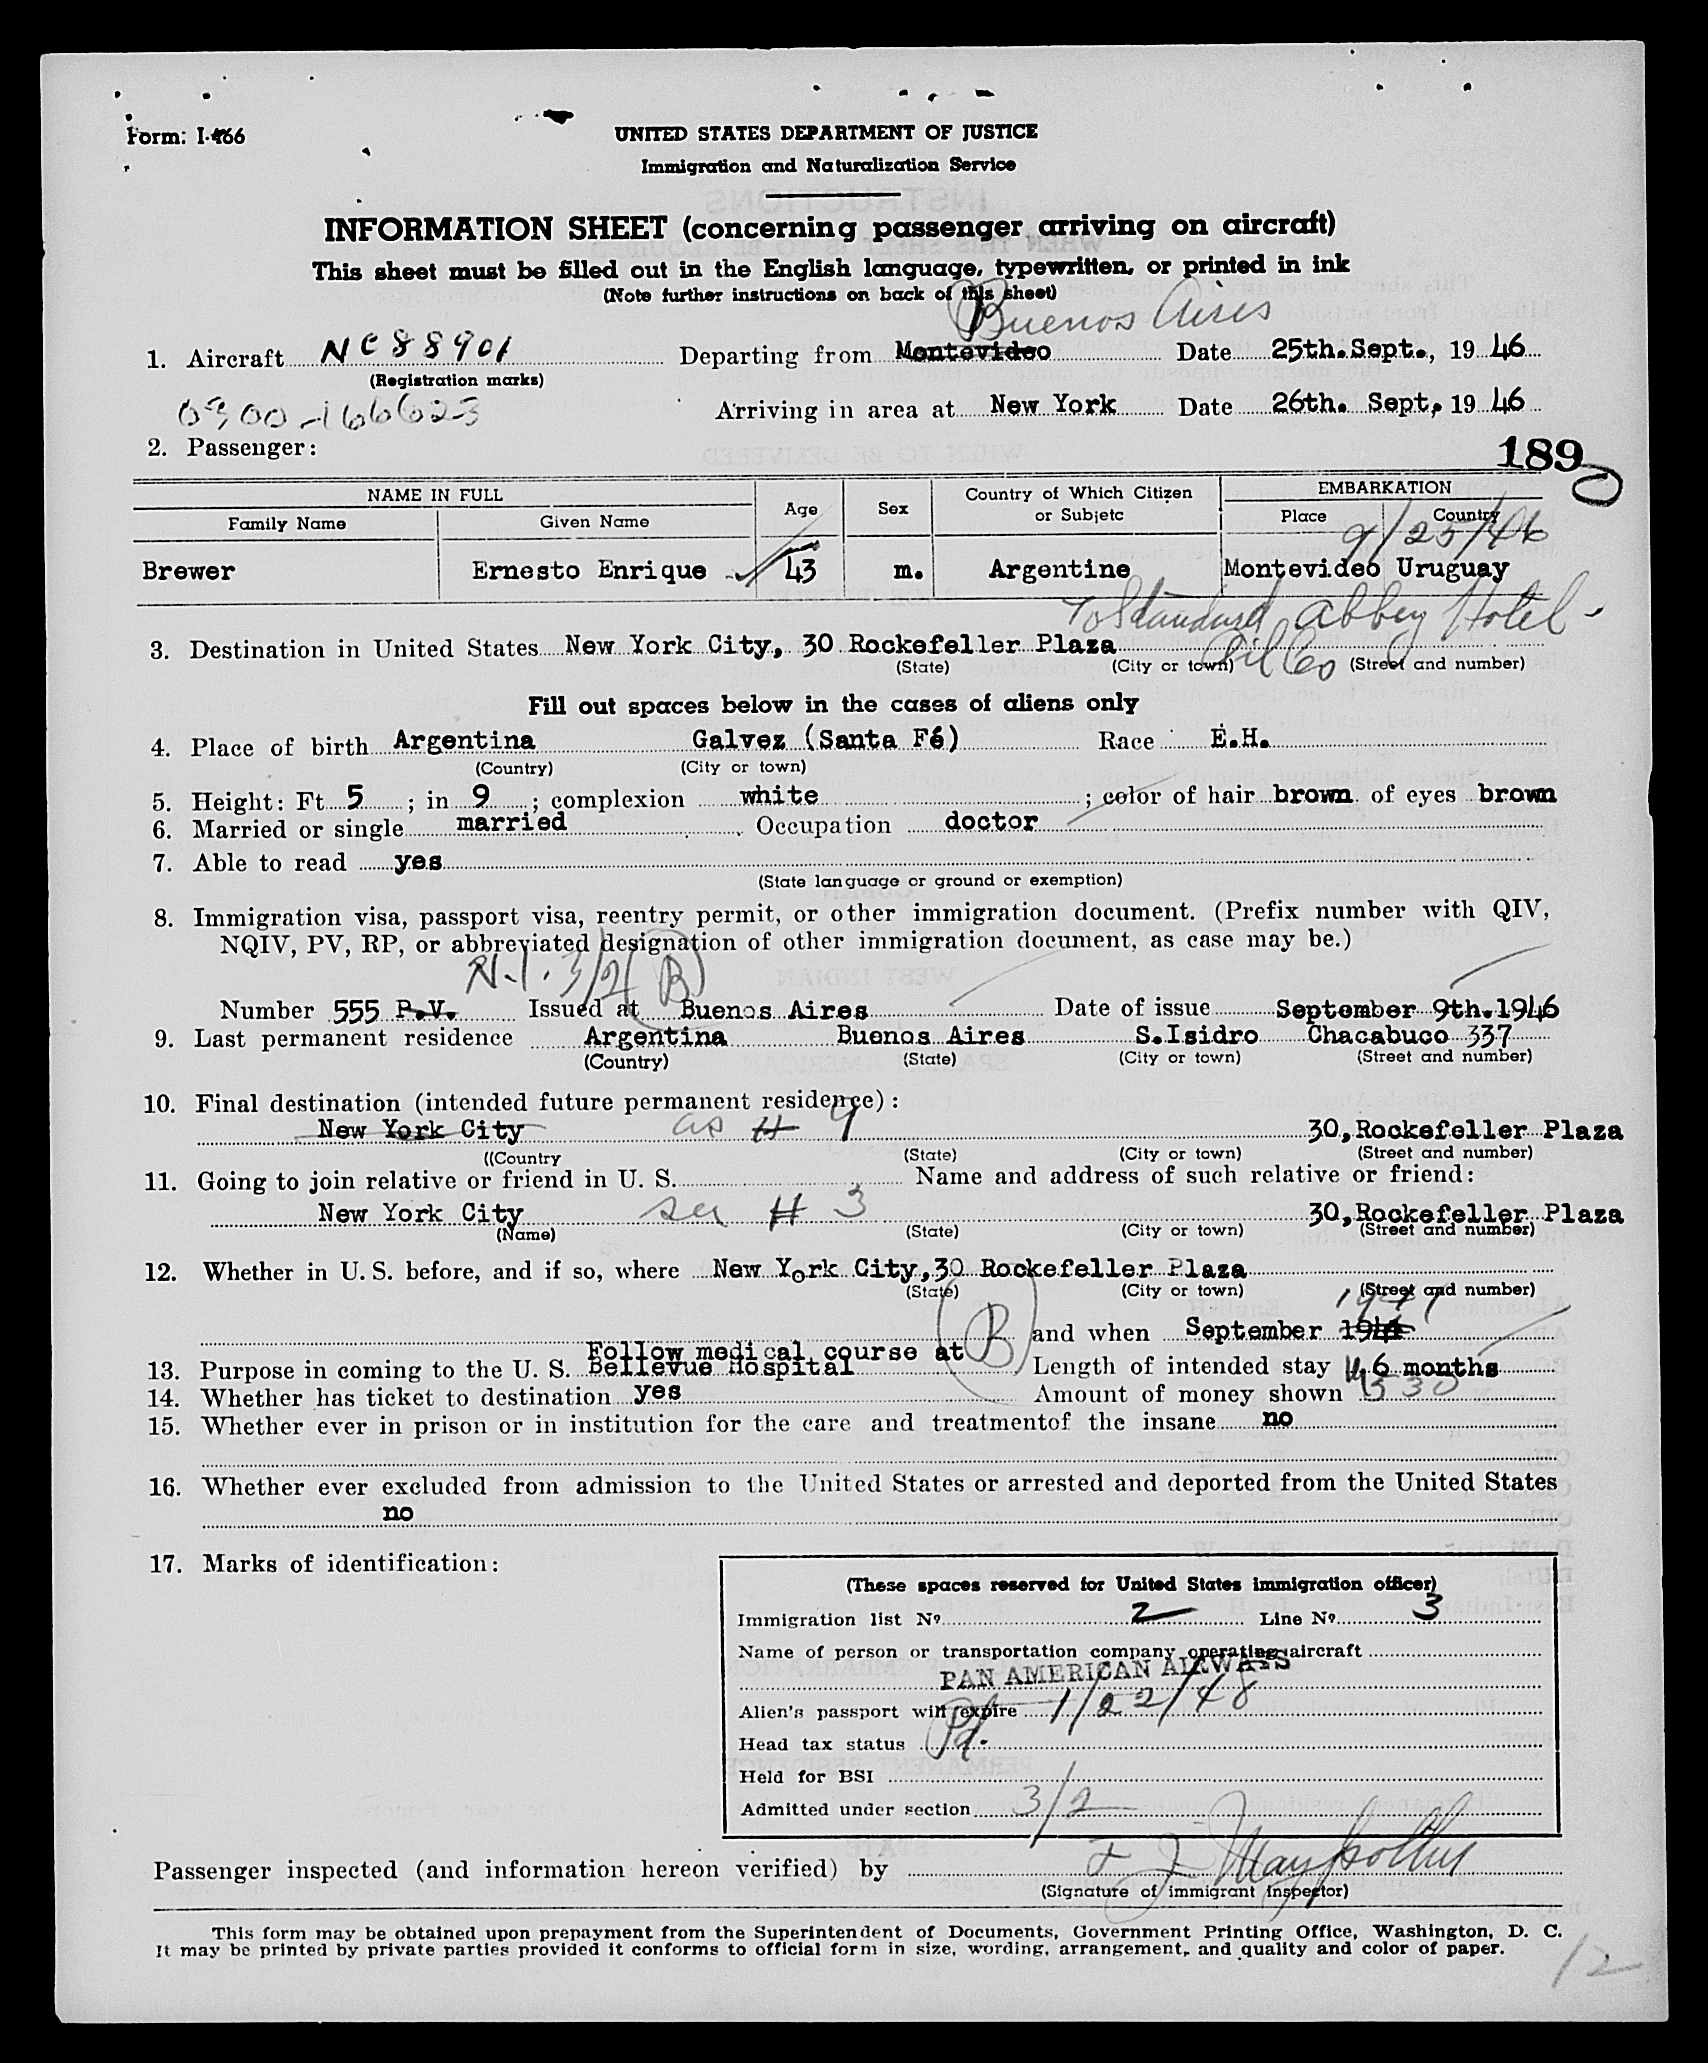 Form: I-466
UNITED STATES DEPARTMENT OF JUSTICE
Immigration and Naturalization Service
INFORMATION SHEET (concerning passenger arriving on aircraft)
This sheet must be filled out in the English language, typewritten, or printed in ink
(Note further instructions on back of this sheet)
Buenos Aires
1. Aircraft NC88901 Departing from Montevideo Date 25th.Sept., 19 46
(Registration marks)
0300-166623 Arriving in area at New York Date 26th. Sept, 19 46
2. Passenger:
189
NAME IN FULL Age Sex Country of Which Citizen or Subjetc EMBARKATION
Family Name Given Name Place Country
9/25/46
Brewer Ernesto Enrique 43 m. Argentine Montevideo Uruguay
To Standard Oil Co Abbey Hotel
3. Destination in United States New York City, 30 Rockefeller Plaza
(State) (City or town) (Street and number)
Fill out spaces below in the cases of aliens only
4. Place of birth Argentina Galvez (Santa Fé) Race E.H.
(Country) (City or town)
5. Height: Ft 5 ; in 9 ; complexion white ; color of hair brown of eyes brown
6. Married or single married Occupation doctor
7. Able to read yes
(State language or ground or exemption)
8. Immigration visa, passport visa, reentry permit, or other immigration document. (Prefix number with QIV,
NQIV, PV, RP, or abbreviated designation of other immigration document, as case may be.)
N.I. 3/2 (B)
Number 555 P.V. Issued at Buenos Aires Date of issue September 9th.1946
9. Last permanent residence Argentina Buenos Aires S.Isidro Chacabuco 337
(Country) (State) (City or town) (Street and number)
10. Final destination (intended future permanent residence):
New York City as # 9 30,Rockefeller Plaza
((Country (State) (City or town) (Street and number)
11. Going to join relative or friend in U. S. Name and address of such relative or friend:
New York City see # 3 30,Rockefeller Plaza
(Name) (State) (City or town) (Street and number)
12. Whether in U. S. before, and if so, where New York City,30 Rockefeller Plaza
(State) (City or town) (Street and number)
1941
(B) and when September 1944
Follow medical course at
13. Purpose in coming to the U. S. Bellevue Hospital Length of intended stay 6 months
14. Whether has ticket to destination yes Amount of money shown 530
15. Whether ever in prison or in institution for the care and treatmentof the insane no
16. Whether ever excluded from admission to the United States or arrested and deported from the United States
no
17. Marks of identification:
(These spaces reserved for United States immigration officer)
Immigration list Nº 2 Line Nº 3
Name of person or transportation company operating aircraft
PAN AMERICAN AIRWAYS
Alien's passport will expire 1/22/48
Head tax status Pd.
Held for BSI
Admitted under section 3/2
Passenger inspected (and information hereon verified) by
(Signature of immigrant Inspector)
This form may be obtained upon prepayment from the Superintendent of Documents, Government Printing Office, Washington, D. C.
It may be printed by private parties provided it conforms to official form in size, wording, arrangement, and quality and color of paper.
12